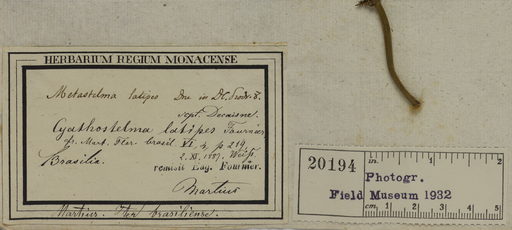 HERBARIUM REGIUM MONACENSE
Metastelma latipes Dne in DC. Prodr. 8.
sept. Decaisne.
Cyathostelma latipes Fournier
fr. Mart. Fl. brasil VI. 4, p 219,
Brasilia. 2. XI. 1887.
remisit Eug. Fournier.
Martius
Martius. Iter brasiliense.
20194
in. 1 2
Photogr.
Field Museum 1932
cm 1 2 3 4 5